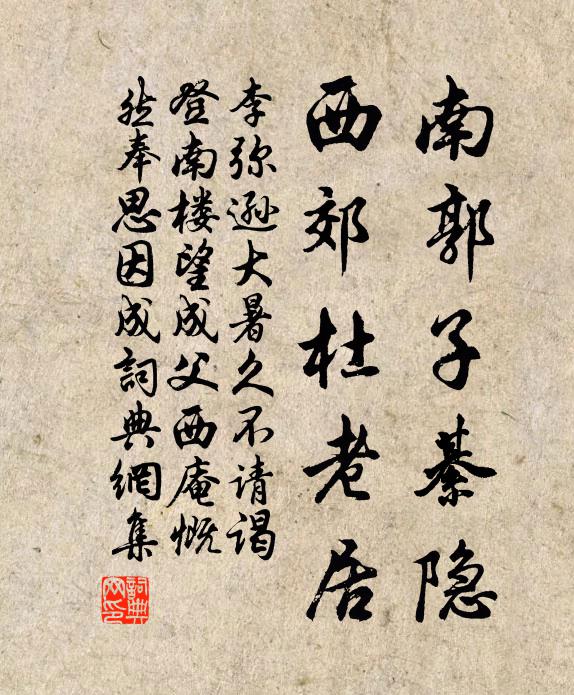 南郭子綦隐
西郊杜老居
李弥逊大暑久不请谒
登南楼望成父西庵慨
然奉思因成詞典網集
詞典网印